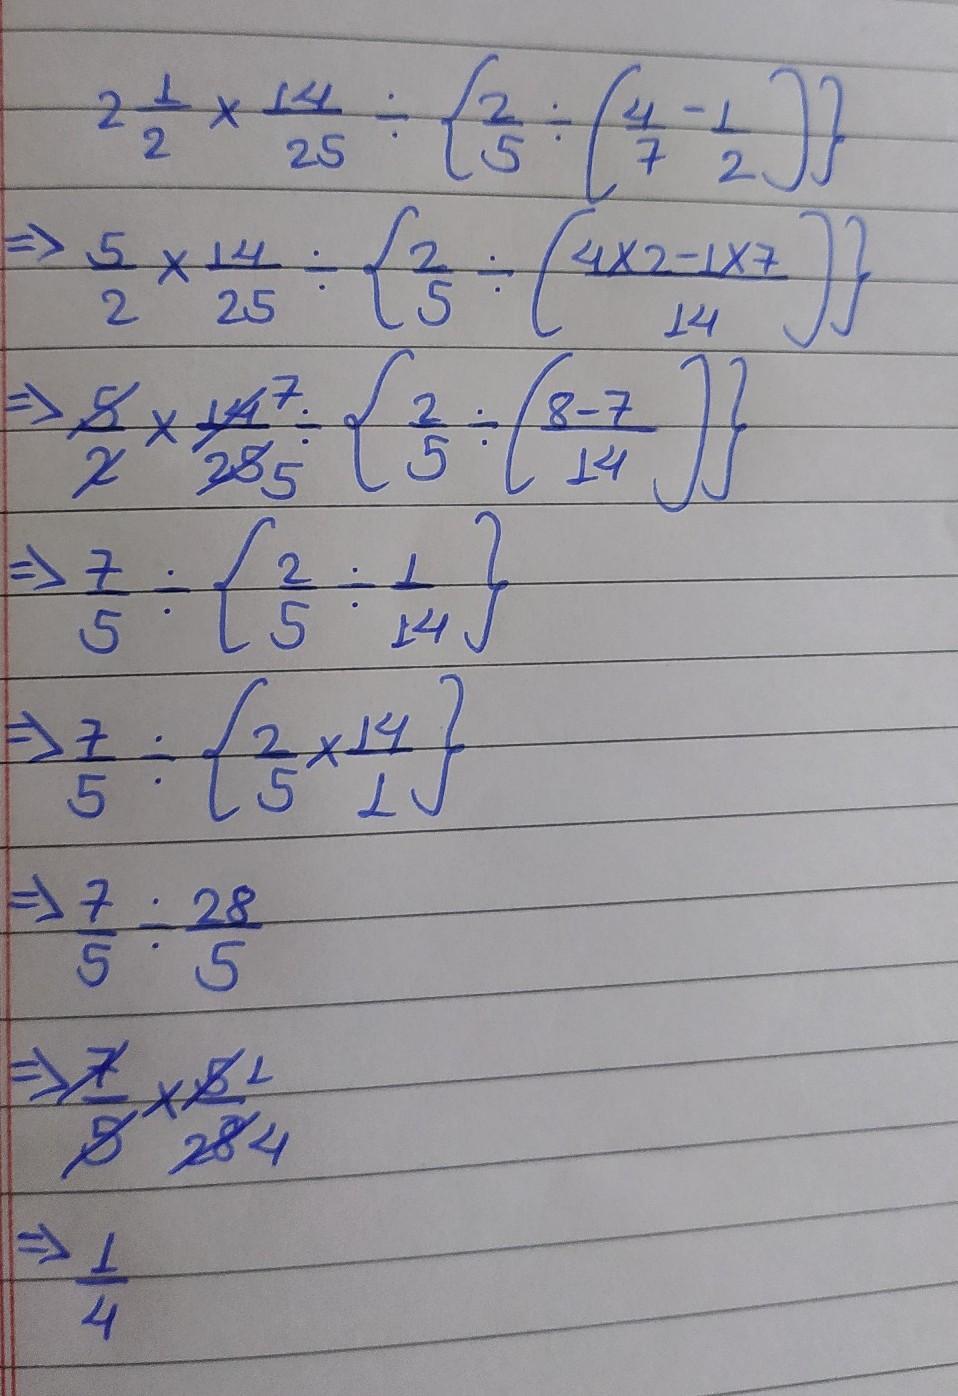 2 1/2 × 14/25 ÷ {2/5 ÷ (4/7 - 1/2)}
⇒ 5/2 × 14/25 ÷ {2/5 ÷ (4×2-1×7/14)}
⇒ 5/2 × 14/25 7/5 ÷ {2/5 ÷ (8-7/14)}
⇒ 7/5 ÷ {2/5 ÷ 1/14}
⇒ 7/5 ÷ {2/5 × 14/1}
⇒ 7/5 ÷ 28/5
⇒ 7/5 × 5/28 1/4
⇒ 1/4